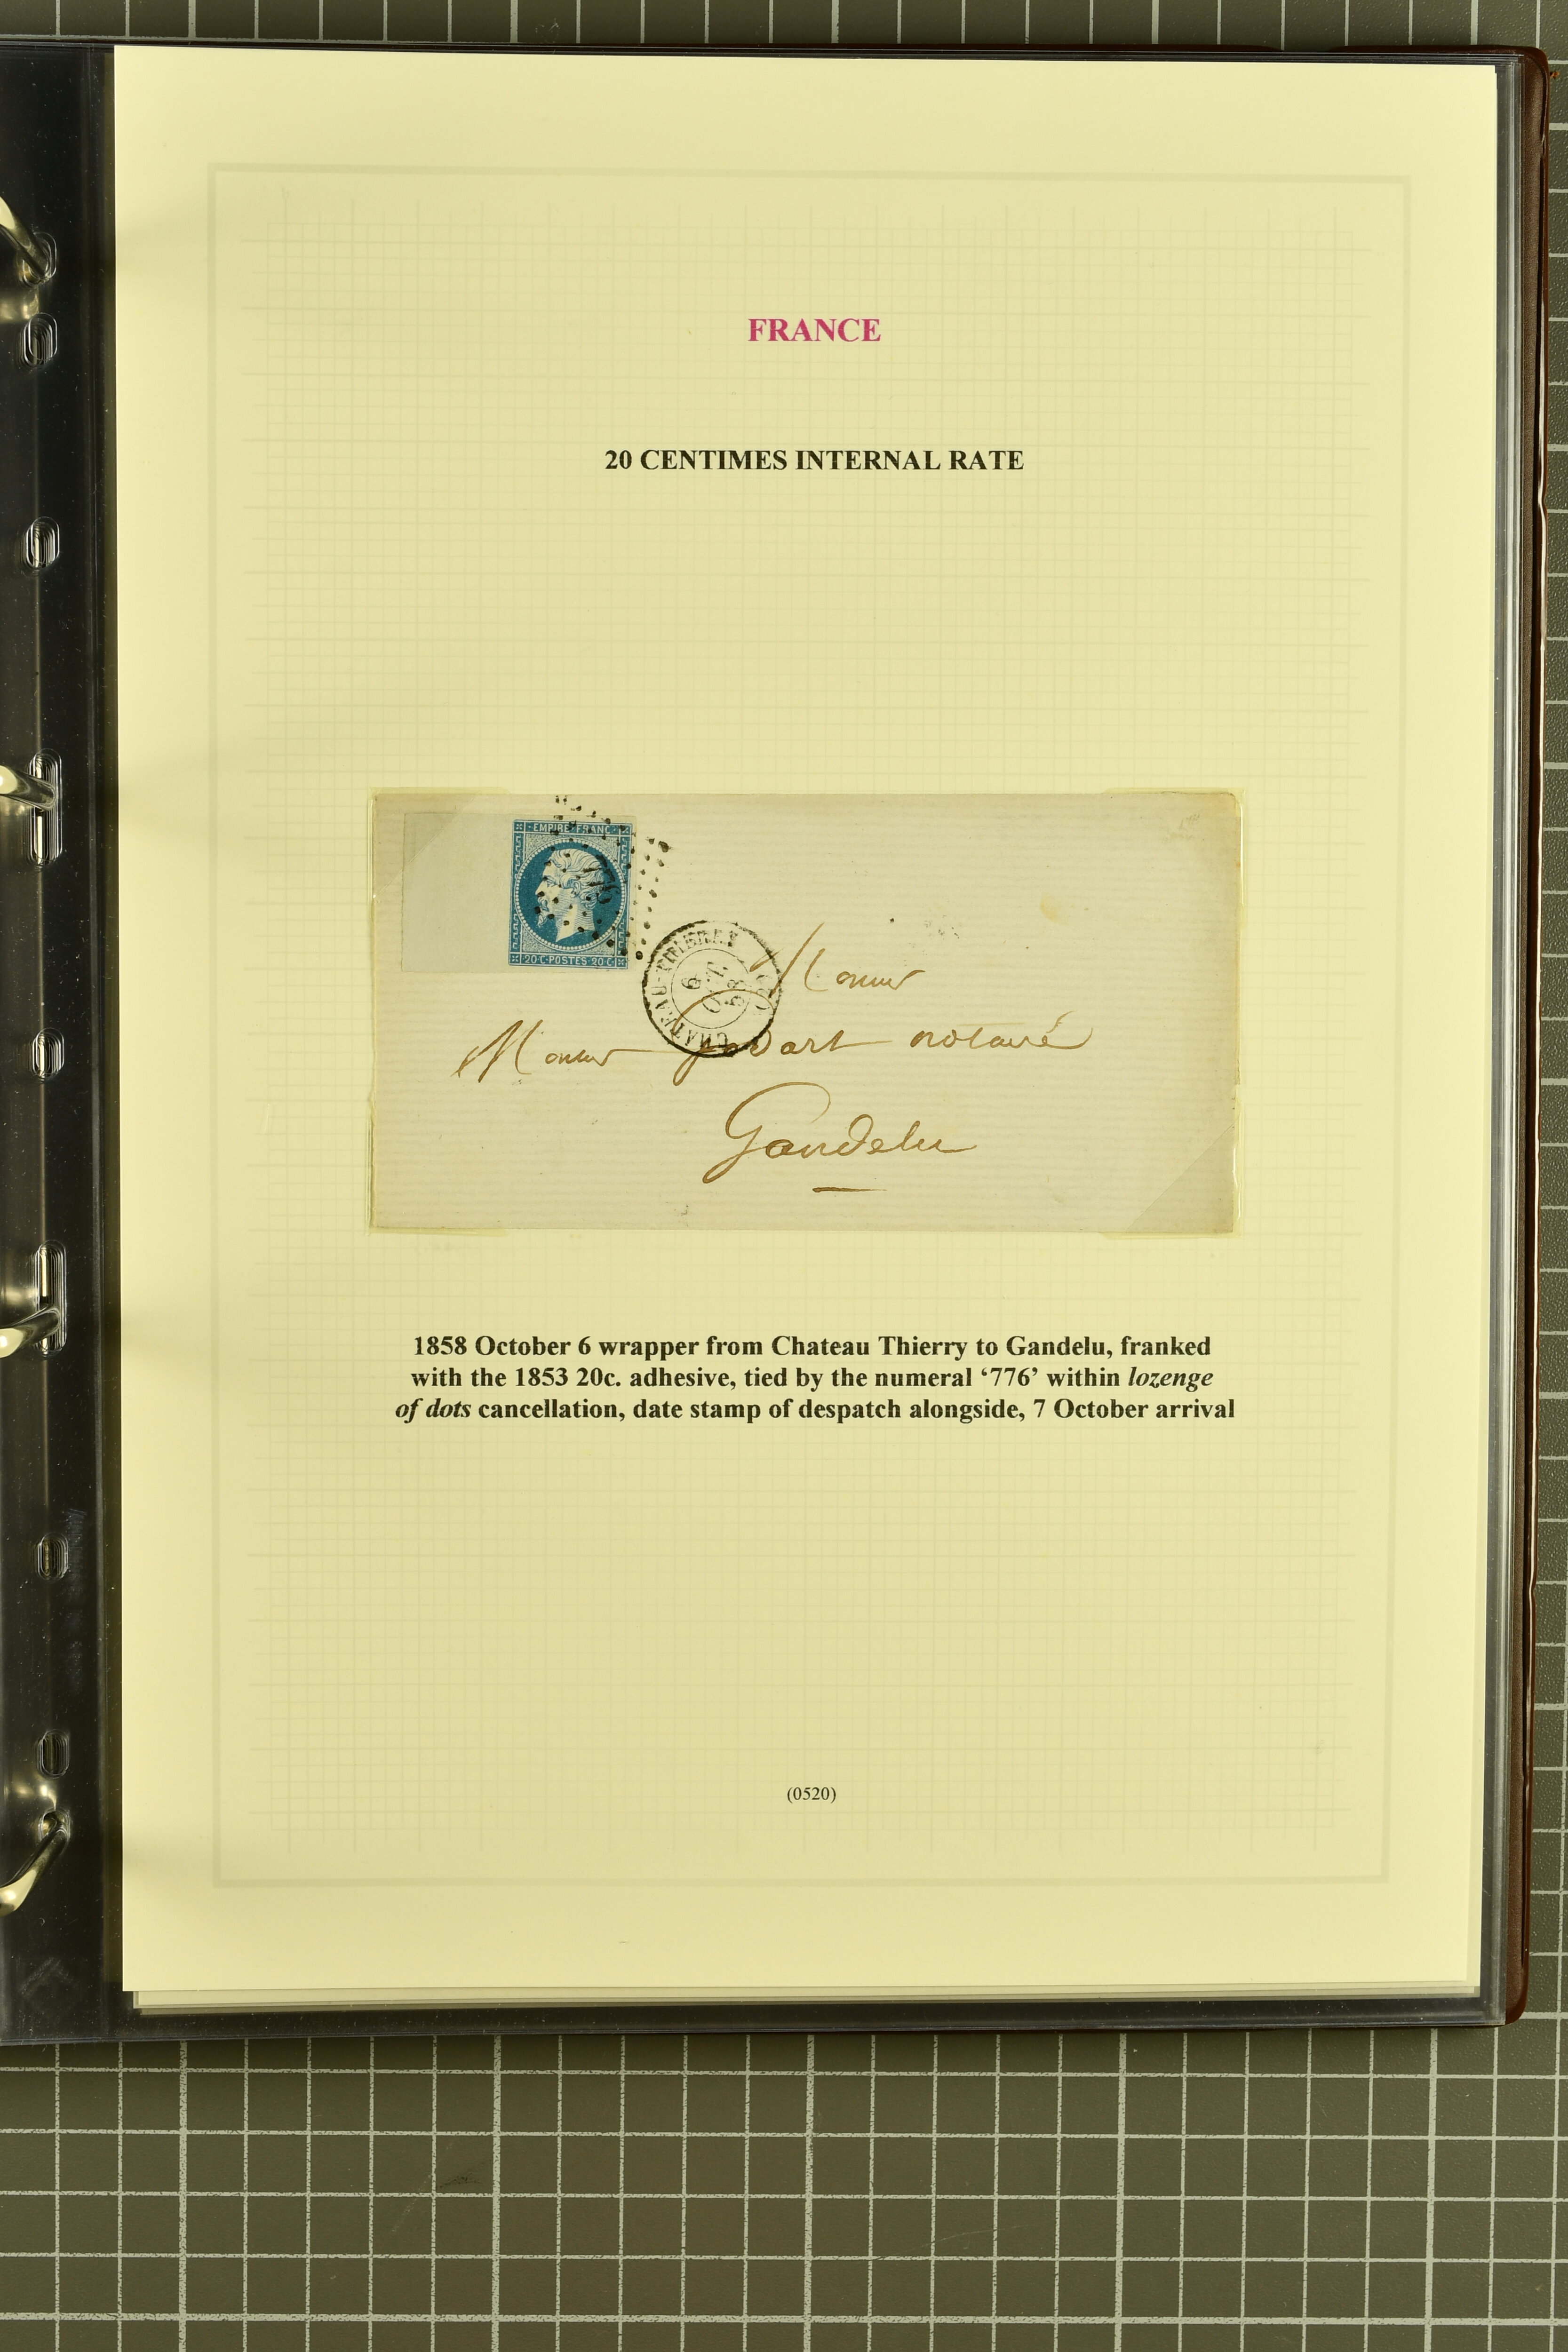 FRANCE
20 CENTIMES INTERNAL RATE
EMPIRE FRANC
776
20 C POSTES 20 C
CHATEAU-THIERRY
6
OCT.
58
Monsieur
Monsieur notaire
Gandelu
1858 October 6 wrapper from Chateau Thierry to Gandelu, franked
with the 1853 20c. adhesive, tied by the numeral ‘776’ within lozenge
of dots cancellation, date stamp of despatch alongside, 7 October arrival
(0520)